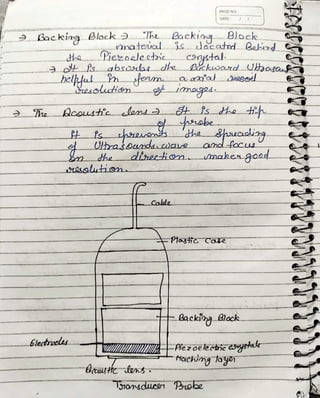 PAGE NO.
DATE / /
→ Backing Block → The Backing Block
material is located Behind
the Piezoelectric crystal.
→ It is absorbs the Backward Ultrasound
helpful in form axial
resolution of images.
→ The Acoustic lens → It is the tip
of probe.
It is prevents the spreading
of Ultrasounds wave and focus
in the direction. makes good
resolution.
Cable
Plastic Case
Backing Block
Electrodes
Piezoelectric crystals
Maching layer
Acoustic lens.
Transducer Probe